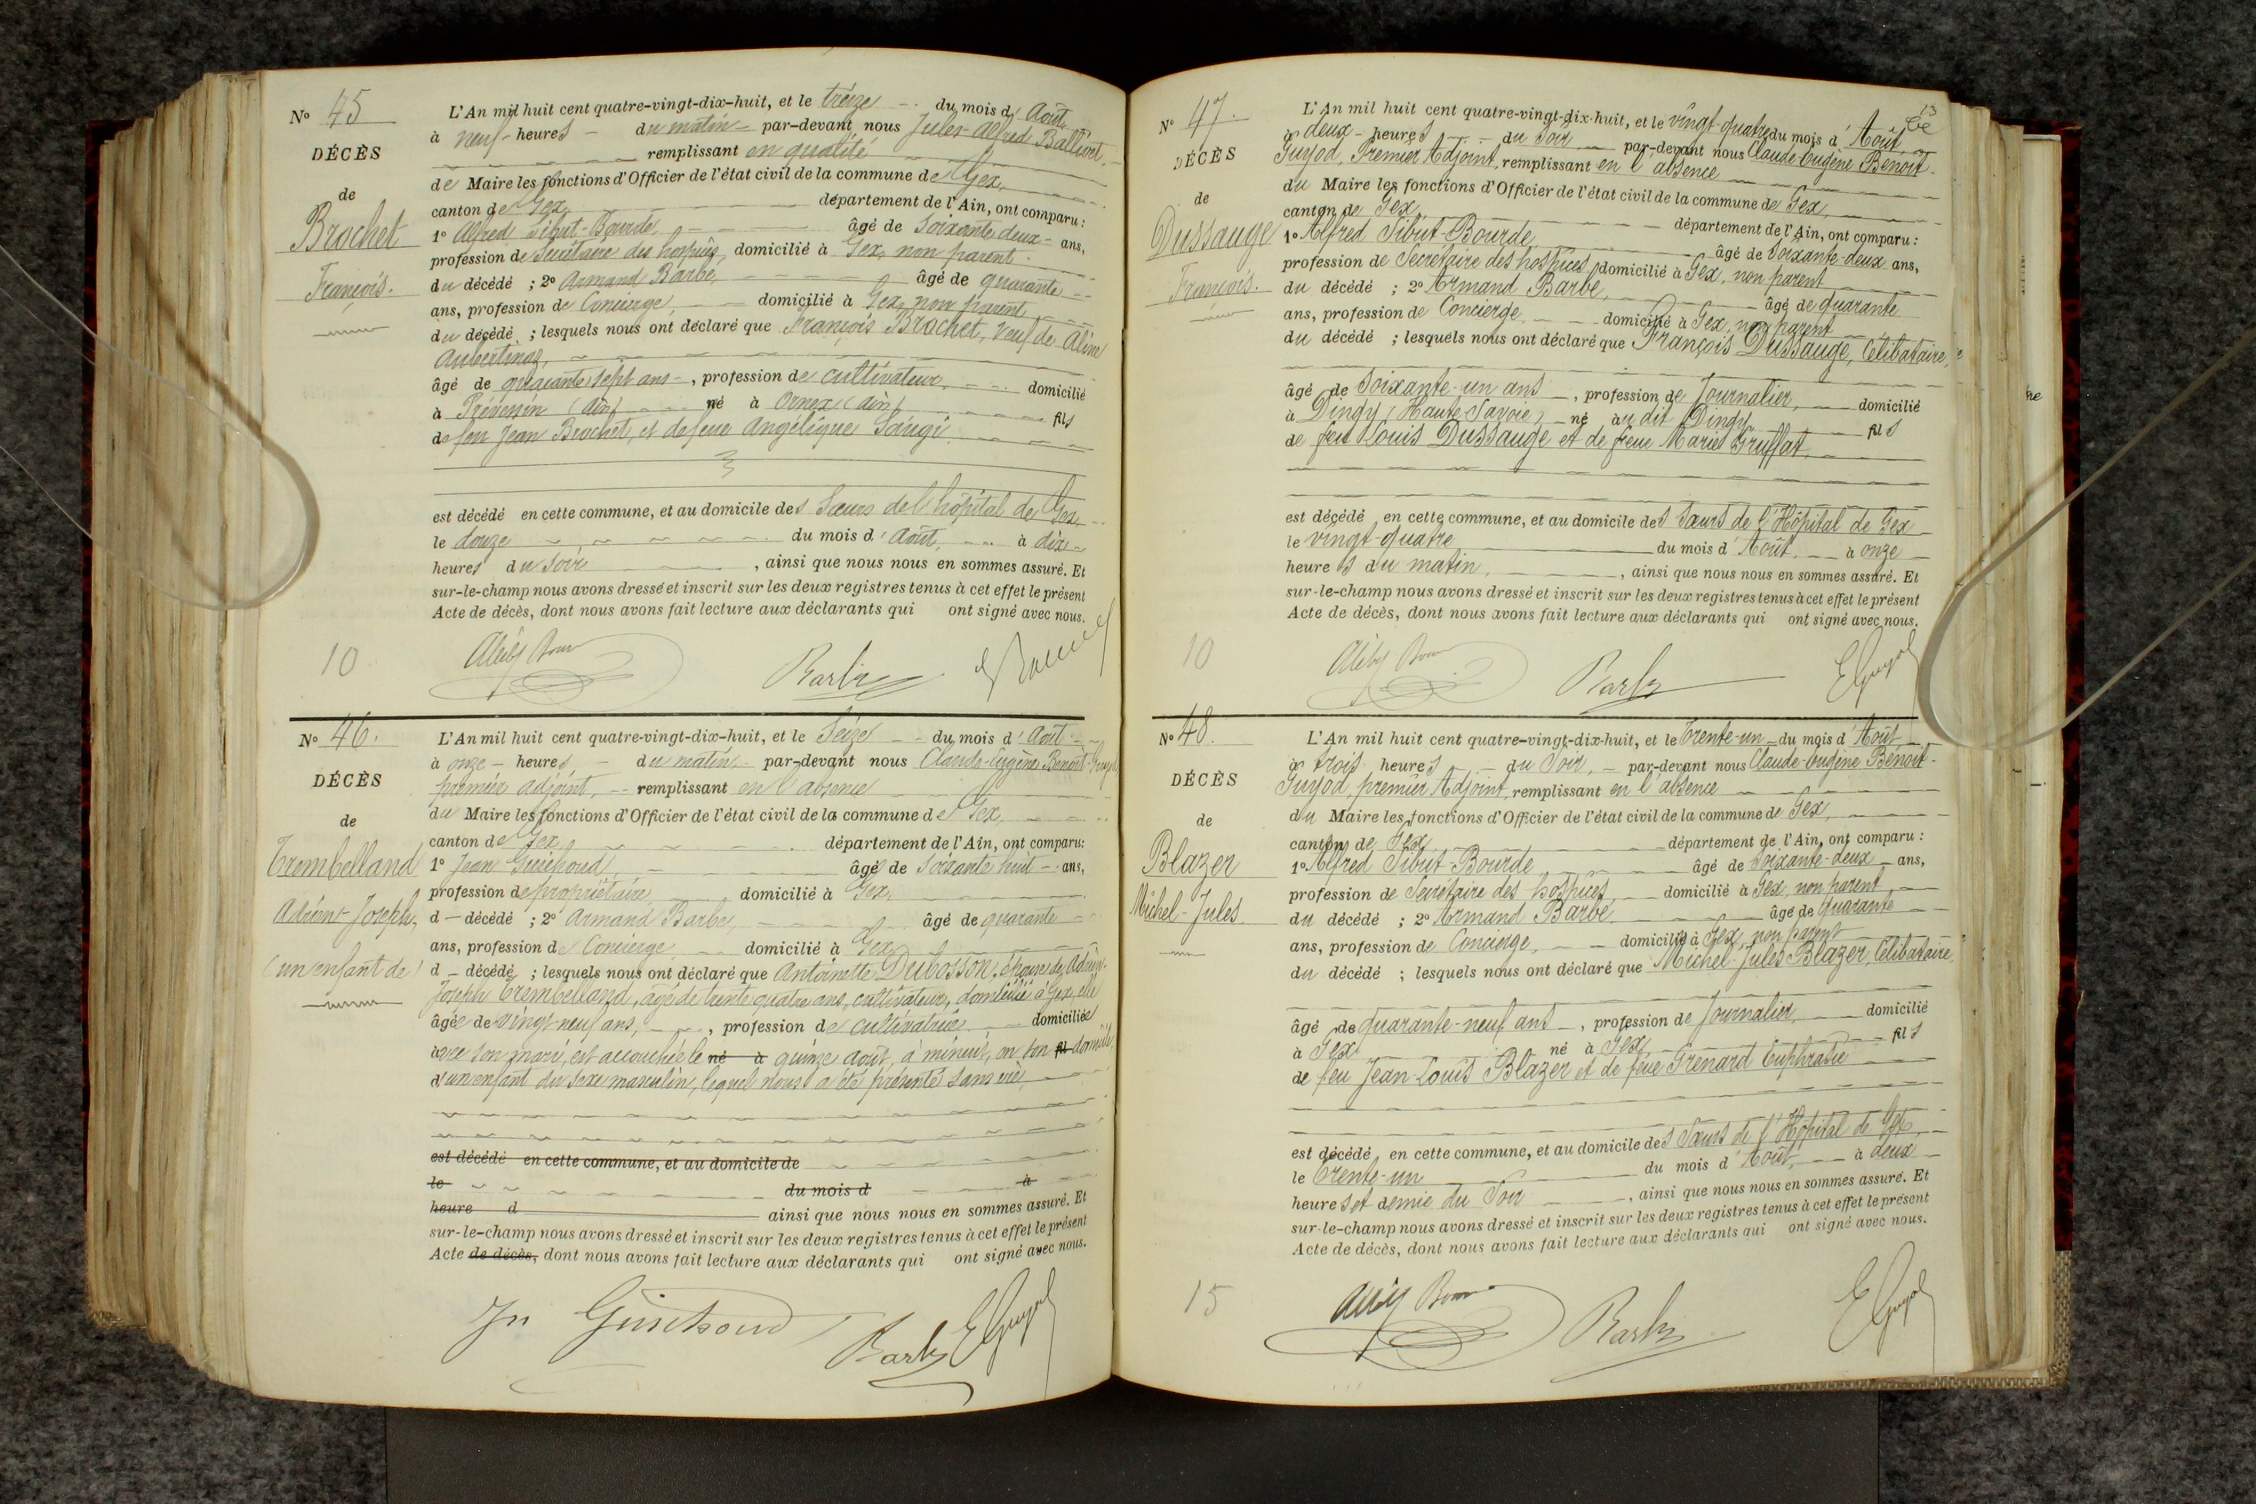 No 45
DÉCÈS
de
Brochet
François.
L'An mil huit cent quatre-vingt-dix-huit, et le treize du mois d'Août,
à neuf heures du matin par-devant nous Jules Alfred Ballivet,
remplissant en qualité
de Maire les fonctions d'Officier de l'état civil de la commune de Gex,
canton de Gex département de l'Ain, ont comparu:
1° Alfred Sibut-Bourde, âgé de Soixante deux ans,
profession de Secrétaire des hospices, domicilié à Gex, non parent
du décédé ; 2° Armand Barbe, âgé de quarante
ans, profession de Concierge, domicilié à Gex, non parent
du décédé ; lesquels nous ont déclaré que François Brochet, veuf de Aline
Aubertinaz,
âgé de quarante sept ans, profession de cultivateur, domicilié
à Prévessin (Ain) né à Ornex (Ain) fils
de feu Jean Brochet, et de feue Angélique
est décédé en cette commune, et au domicile des Sœurs de l'hôpital de Gex
le douze du mois d'Août, à dix
heures du soir, ainsi que nous nous en sommes assuré. Et
sur-le-champ nous avons dressé et inscrit sur les deux registres tenus à cet effet le présent
Acte de décès, dont nous avons fait lecture aux déclarants qui ont signé avec nous.
10
Barbe
No 46.
DÉCÈS
de
Trembelland
Adrien-Joseph,
(un enfant de)
L'An mil huit cent quatre-vingt-dix-huit, et le Seize du mois d'Août
à onze heures du matin par-devant nous Claude-Eugène Benoit-Guyod
premier adjoint, remplissant en l'absence
du Maire les fonctions d'Officier de l'état civil de la commune de Gex,
canton de Gex département de l'Ain, ont comparu:
1° Jean Guichoud, âgé de Soixante huit ans,
profession de propriétaire domicilié à Gex,
d décédé ; 2° Armand Barbe, âgé de quarante
ans, profession de Concierge domicilié à Gex
d décédé ; lesquels nous ont déclaré que Antoinette Dubosson, épouse de Adrien-
Joseph Trembelland, âgé de trente quatre ans, cultivateur, domicilié à Gex, elle
âgée de vingt-neuf ans, profession de cultivatrice domiciliée
avec son mari, est accouchée le né à quinze août, à minuit, en son fil domicile
d'un enfant du sexe masculin, lequel nous a été présenté sans vie,
est décédé en cette commune, et au domicile de
le du mois d à
heure d ainsi que nous nous en sommes assuré. Et
sur-le-champ nous avons dressé et inscrit sur les deux registres tenus à cet effet le présent
Acte de décès, dont nous avons fait lecture aux déclarants qui ont signé avec nous.
Jn Guichoud Barbe E Guyod
13
No 47.
DÉCÈS
de
Dussauge
François.
L'An mil huit cent quatre-vingt-dix-huit, et le vingt-quatre du mois d'Août,
à deux heures du Soir par-devant nous Claude-Eugène Benoit-
Guyod, Premier Adjoint, remplissant en l'absence
du Maire les fonctions d'Officier de l'état civil de la commune de Gex,
canton de Gex département de l'Ain, ont comparu:
1° Alfred Sibut-Bourde, âgé de Soixante-deux ans,
profession de Secrétaire des hospices, domicilié à Gex, non parent
du décédé ; 2° Armand Barbe, âgé de quarante
ans, profession de Concierge domicilié à Gex, non parent
du décédé ; lesquels nous ont déclaré que François Dussauge, Célibataire,
âgé de Soixante-un ans, profession de Journalier, domicilié
à Dingy (Haute-Savoie) né au dit Dingy fils
de feu Louis Dussauge et de feue Marie Gruffat
est décédé en cette commune, et au domicile des Sœurs de l'Hôpital de Gex
le vingt-quatre du mois d'Août à onze
heures du matin, ainsi que nous nous en sommes assuré. Et
sur-le-champ nous avons dressé et inscrit sur les deux registres tenus à cet effet le présent
Acte de décès, dont nous avons fait lecture aux déclarants qui ont signé avec nous.
10
Barbe E Guyod
No 48.
DÉCÈS
de
Blazer
Michel-Jules
L'An mil huit cent quatre-vingt-dix-huit, et le Trente-un du mois d'Août
à trois heures du Soir, par-devant nous Claude-Eugène Benoit-
Guyod, premier Adjoint, remplissant en l'absence
du Maire les fonctions d'Officier de l'état civil de la commune de Gex,
canton de Gex département de l'Ain, ont comparu:
1° Alfred Sibut-Bourde âgé de Soixante-deux ans,
profession de Secrétaire des hospices, domicilié à Gex, non parent,
du décédé ; 2° Armand Barbe âgé de quarante
ans, profession de Concierge, domicilié à Gex, non parent
du décédé ; lesquels nous ont déclaré que Michel-Jules Blazer, Célibataire,
âgé de quarante-neuf ans, profession de Journalier, domicilié
à Gex né à Gex fils
de feu Jean-Louis Blazer et de feue Grenard Euphrasie
est décédé en cette commune, et au domicile des Sœurs de l'Hôpital de Gex,
le Trente-un du mois d'Août, à deux
heures et demie du Soir, ainsi que nous nous en sommes assuré. Et
sur-le-champ nous avons dressé et inscrit sur les deux registres tenus à cet effet le présent
Acte de décès, dont nous avons fait lecture aux déclarants qui ont signé avec nous.
15
Barbe E Guyod